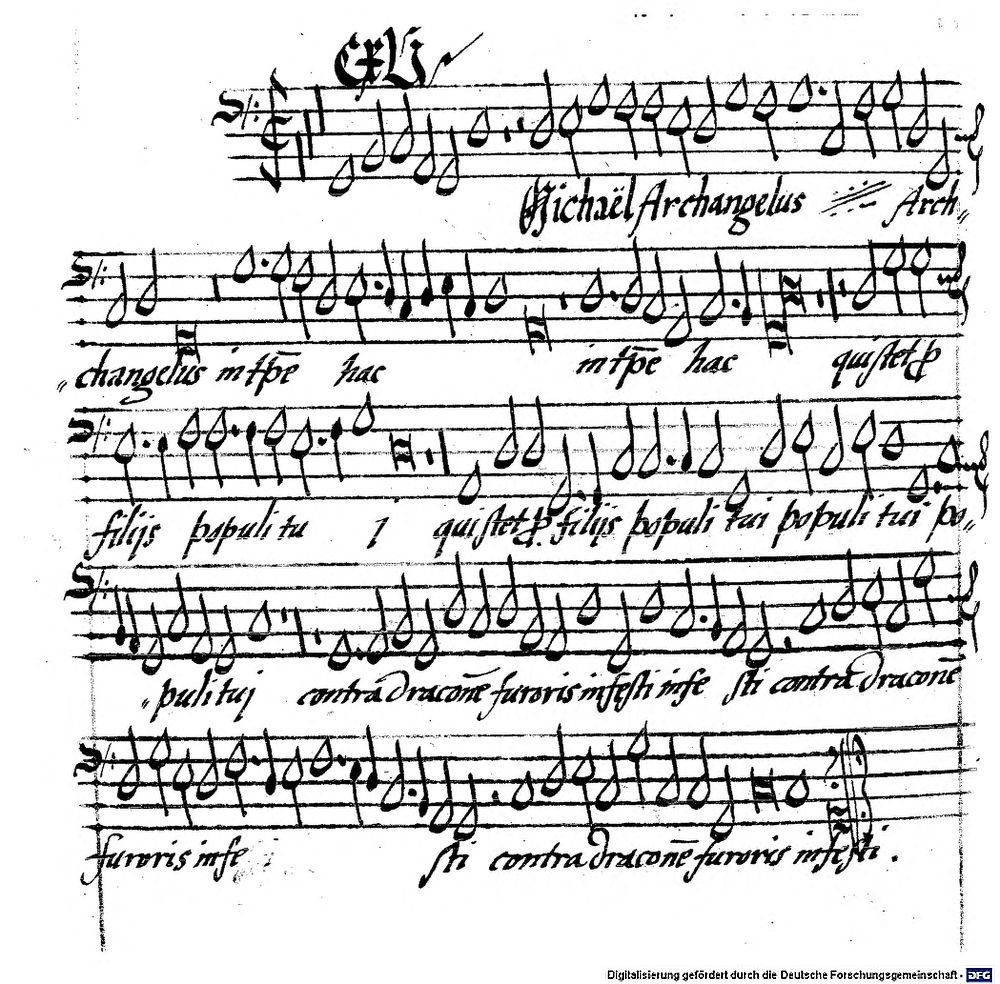 CXVI
Michaël Archangelus Arch„
„changelus in tp̄e hac in tp̄e hac qui stet ꝑ
filijs populi tu j qui stet ꝑ filijs populi tui populi tui po„
„puli tuj contra draconē furoris infesti infe sti contra draconē
furoris infe sti contra draconē furoris infesti.
Digitalisierung gefördert durch die Deutsche Forschungsgemeinschaft - DFG